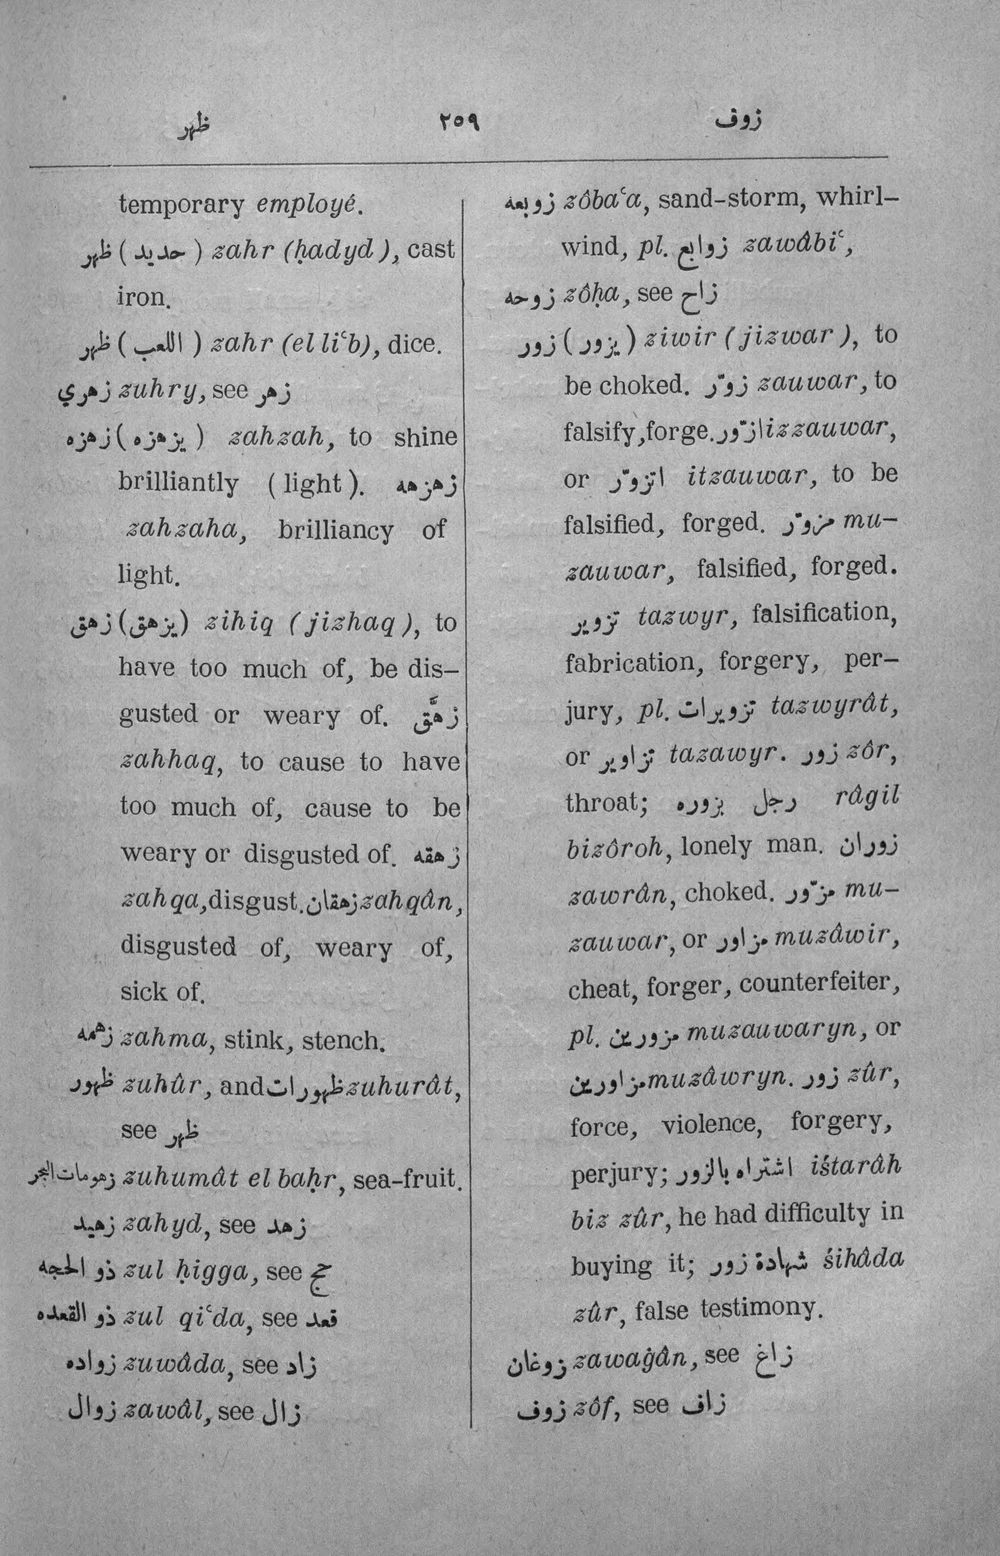 ظهر ٢٥٩ زوف
temporary employé.
ظهر ( حديد ) zahr (ḥadyd), cast
iron.
ظهر ( اللعب ) zahr (el liʿb), dice.
زهري zuhry, see زهر
زهزه ( يزهزه ) zahzah, to shine
brilliantly (light). زهزهه
zahzaha, brilliancy of
light.
زهق (يزهق) zihiq (jizhaq), to
have too much of, be dis-
gusted or weary of. زهَّق
zahhaq, to cause to have
too much of, cause to be
weary or disgusted of. زهقه
zahqa, disgust. زهقان zahqân,
disgusted of, weary of,
sick of.
زهمه zahma, stink, stench.
ظهور zuhûr, and ظهورات zuhurât,
see ظهر
زهومات البحر zuhumât el baḥr, sea-fruit.
زهيد zahyd, see زهد
ذو الحجه zul ḥigga, see حج
ذو القعده zul qiʿda, see قعد
زواده zuwâda, see زاد
زوال zawâl, see زال
زوبعه zôbaʿa, sand-storm, whirl-
wind, pl. زوابع zawâbiʿ,
زوحه zôḥa, see زاح
زور ( يزور ) ziwir (jizwar), to
be choked. زوّر zauwar, to
falsify, forge. ازّور izzauwar,
or اتزوّر itzauwar, to be
falsified, forged. مزوّر mu-
zauwar, falsified, forged.
تزوير tazwyr, falsification,
fabrication, forgery, per-
jury, pl. تزويرات tazwyrât,
or تزاوير tazawyr. زور zôr,
throat; رجل بزوره râgil
bizôroh, lonely man. زوران
zawrân, choked. مزّور mu-
zauwar, or مزاور muzâwir,
cheat, forger, counterfeiter,
pl. مزورين muzauwaryn, or
مزاورين muzâwryn. زور zûr,
force, violence, forgery,
perjury; اشتراه بالزور iśtarâh
biz zûr, he had difficulty in
buying it; شهادة زور śihâda
zûr, false testimony.
زوغان zawaġân, see زاغ
زوف zôf, see زاف